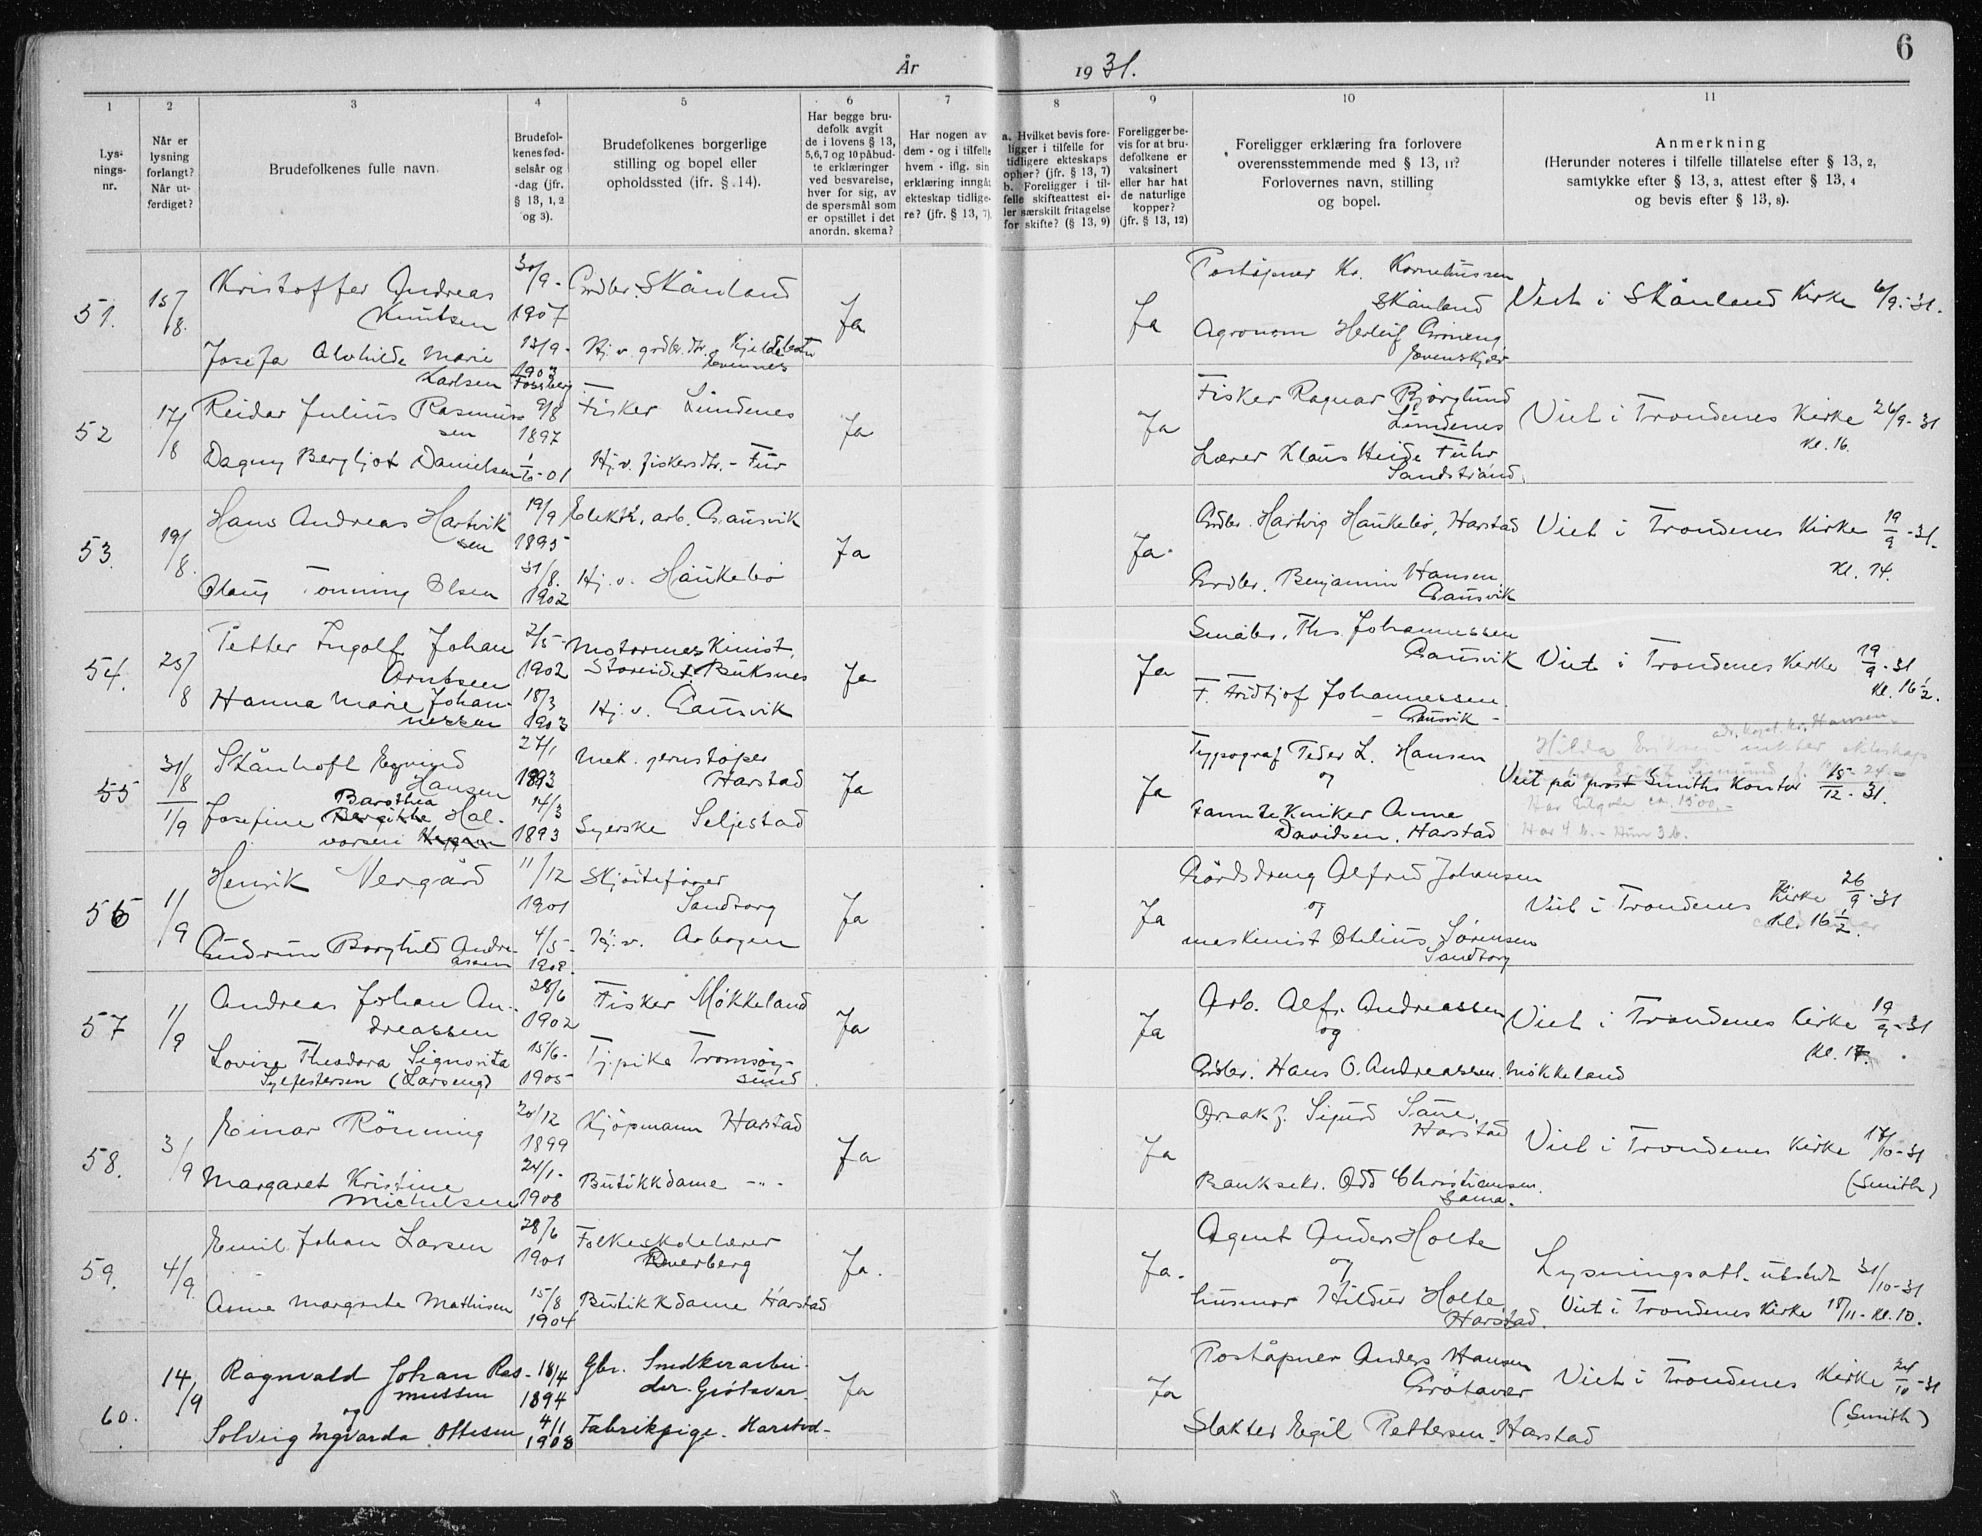 År 1931.
6
1 2 3 4 5 6 7 8 9 10 11
Lys-
nings-
nr.
Når er
lysning
forlangt?
Når ut-
ferdiget?
Brudefolkenes fulle navn.
Brudefol-
kenes fød-
selsår og
-dag (jfr.
§ 13, 1, 2
og 3).
Brudefolkenes borgerlige
stilling og bopel eller
opholdssted (jfr. § 14).
Har begge bru-
defolk avgit
de i lovens § 13,
5,6,7 og 10 påbud-
te erklæringer
ved besvarelse,
hver for sig, av
de spørsmål som
er opstillet i det
anordn. skema?
Har nogen av
dem - og i tilfelle
hvem - iflg. sin
erklæring inngåt
ekteskap tidlige-
re? (jfr. § 13, 7)
a. Hvilket bevis fore-
ligger i tilfelle for
tidligere ekteskaps
ophør? (jfr. § 13, 7)
b. Foreligger i til-
felle skifteattest el-
ler særskilt fritagelse
for skifte? (§ 13, 9)
Foreligger be-
vis for at bru-
defolkene er
vaksinert
eller har hat
de naturlige
kopper?
(jfr. § 13, 12)
Foreligger erklæring fra forlovere
overensstemmende med § 13, 11?
Forlovernes navn, stilling
og bopel.
Anmerkning
(Herunder noteres i tilfelle tillatelse efter § 13, 2,
samtykke efter § 13, 3, attest efter § 13, 4
og bevis efter § 13, 8).
51.
15/8.
Kristoffer Andreas
Knutsen
30/9-
1907
Grdbr. Skånland
Josefa Alvhilde Marie
Karlsen
13/9-
1903
Hj. v. grdbr. dtr. Kjeldebotn
Evenes
Ja
Ja
Poståpner Kr. Kornelinssen
Skånland
Agronom Herleif Grøneng
Evenskjer
Viet i Skånland Kirke 6/9-31.
52
17/8
Reidar Julius Rasmus
sen
Fossberg
9/8
1897
Fisker Lundenes
Dagny Bergljot Danielsen
1/6-01
Hj. v. fiskersdtr. - Fur
Ja
Ja
Fisker Ragnar Bjørglund
Lundenes
Lærer Klaus Heide Fuhr
Sandstrand.
Viet i Trondenes Kirke 26/9-31
Kl. 16.
53.
19/8.
Hans Andreas Hartvik
sen
19/9
1895
Elektr. arb. Gausvik
Olaug Tonning Olsen
31/8.
1902
Hj. v. Haukebø
Ja
Ja.
Grdbr. Hartvig Haukebø, Harstad
Grdbr. Benjamin Hansen.
Gausvik
Viet i Trondenes Kirke 19/9-31.
Kl. 14.
54.
25/8
Petter Ingolf Johan
Arntsen
2/5-
1902
Motormaskinist,
Storeidet. Buksnes
Hanna Marie Johan-
nessen
18/3
1903
Hj. v. Gausvik
Ja
Ja
Småbr. Ths. Johannessen
Gausvik
F. Fridtjof Johannessen.
- Gausvik -
Viet i Trondenes Kirke 19/9-31
Kl. 16½.
55
31/8
1/9
Stånhoft Egmund
Hansen
27/1
1893
Mek. jernstøper
Harstad
Barothea
Josefine Bergitte Hal-
vorsen
14/3
1893
Syerske Seljestad
Ja
Ja
Typograf Peder L. Hansen
og
Tanntekniker Anne
Davidsen, Harstad
Hilda Eriksen
Viet på prost Smiths Kontor 15/12-31.
Har 4 b. - Hun 3 b.
56
1/9
Henrik Vergård
11/12
1901
Skjøitefører
Sandtorg
Gudrun Borghild Andre-
assen
4/5-
1908.
Hj. v. Årbogen
Ja
Ja
Gårdsdreng Alfred Johansen
og
maskinist Otelius Sørensen
Sandtorg
Viet i Trondenes Kirke 26/9-31
Kl. 16½.
57
1/9
Andreas Johan An-
dreassen
28/6
1902
Fisker Møkkeland
Lovise Theodora Signorita
Sylfestersen (Larseng)
15/6-
1905
Tj.pike Tromsøy-
sund.
Ja
Ja
Arb. Alf. Andreassen
og
Grdbr. Hans O. Andreassen. Møkkeland
Viet i Trondenes Kirke 19/9-31
Kl. 17.
58.
3/9
Einar Rønning
20/12
1899
Kjøpmann Harstad
Margaret Kristine
Michelsen
24/1-
1908
Butikkdame -"-
Ja
Ja
O.r.sakf. Sigurd Saue,
Harstad
Banksekr. Odd Christiansen.
Sama.
Viet i Trondenes Kirke 17/10-31
(Smith)
59.
4/9.
Emil Johan Larsen
28/6
1901
Folkeskolelærer
Dverberg
Anne Margrete Mathisen
15/8
1904
Butikkdame Harstad
Ja.
Ja.
Agent Anders Holte
og
husmor Hildur Holte,
Harstad.
Lysningsatt. utstedt 31/10-31
Viet i Trondenes Kirke 18/11- Kl. 10.
60.
14/9
Ragnvald Johan Ras-
mussen
og
18/4
1894
Gbr. Snekkerarbei-
der. Grøtavær
Solveig Ingvarda Ottesen
4/1
1908
Fabrikpige. Harstad-
Ja
Ja
Poståpner Anders Hansen
Grøtavær
Slakter Egil Pettersen. Harstad
Viet i Trondenes Kirke 24/10-31
(Smith)